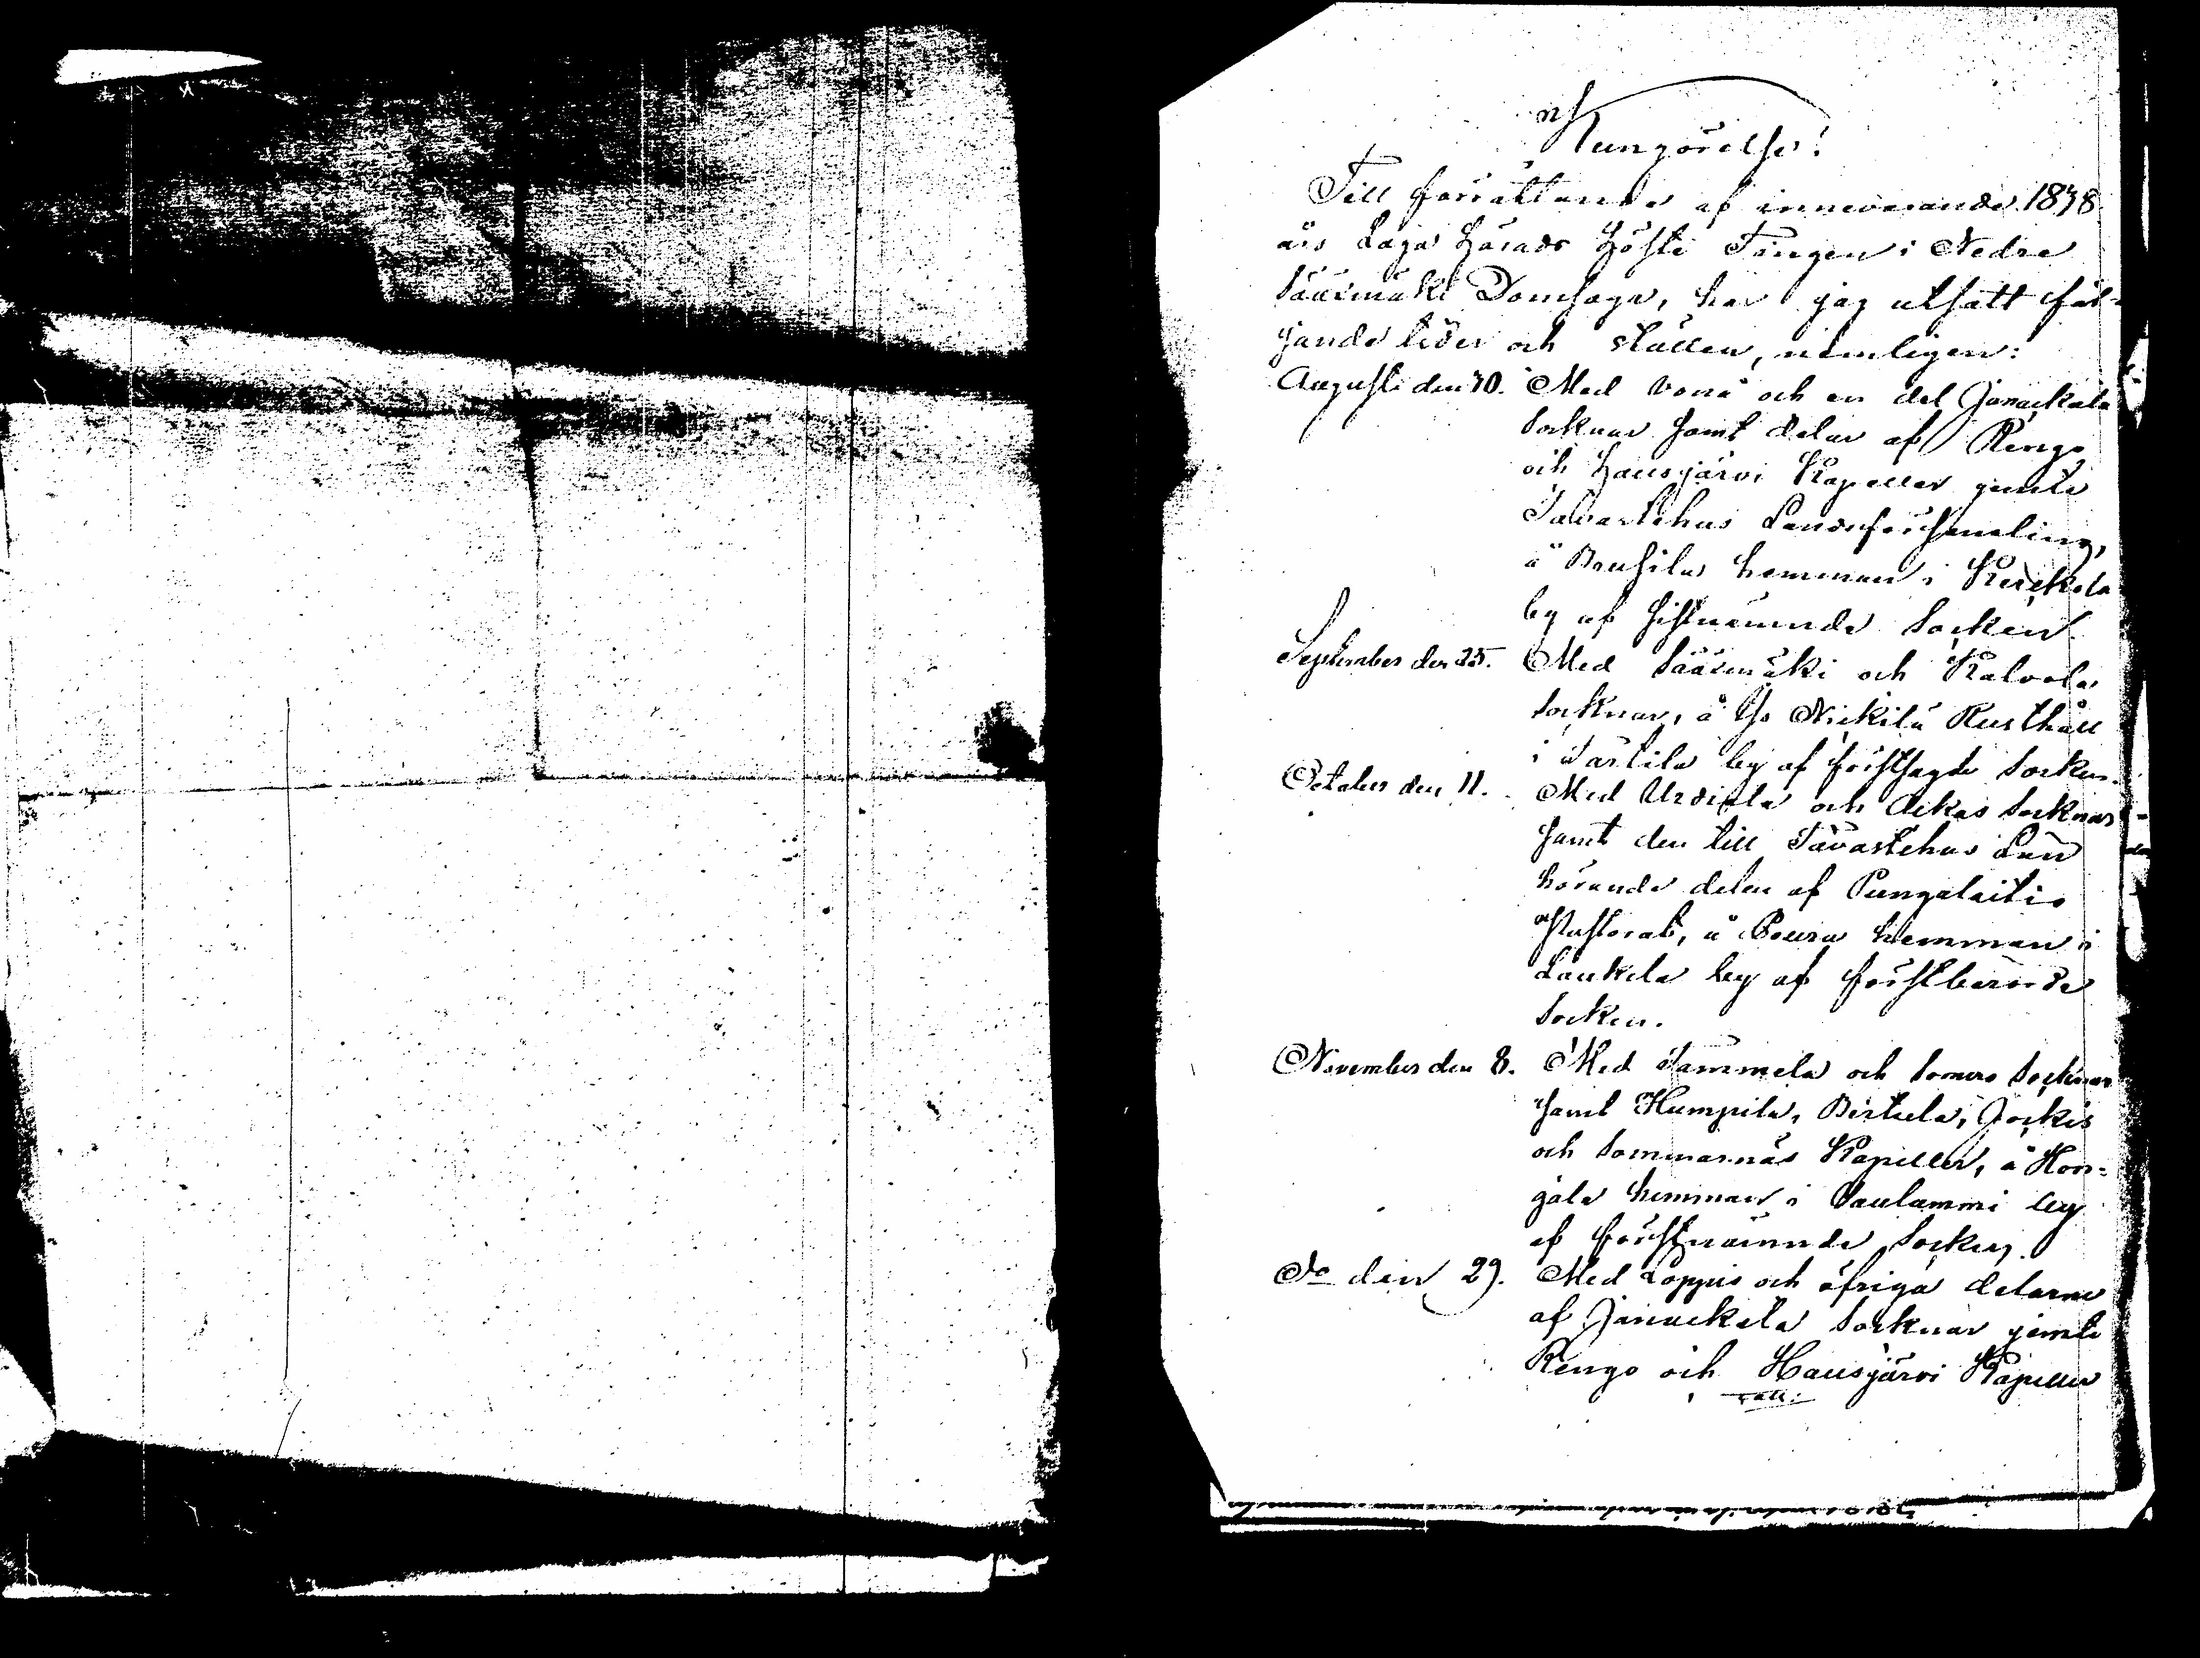 Kungörelse!
Till förrättande af innevarande 1838
års Laga Härads Höste Tingen i Nedre
Sääxmäki Domsaga, har jag utsatt föl-
jande tider och ställen, nämligen:
Augusti den 30. Med Vonå och en del Janackala
Socknar samt delar af Rengo
och Hausjärvi Kapeller jemte
Tavastehus Landsförsamling,
å hemman i
by af sistnämnde Socken
September den 25. Med Sääxmäki och Kalvola
Socknar, å Yli Nickilä Rusthåll
i Tarttila by af förstsagde Socken.
October den 11. Med Urdiala och Ackas Socknar
samt den till Tavastehus Län
hörande delen af Pungalaitio
Pastorat, å hemman i
Laukela by af förstberörde
Socken.
November den 8. Med Tammela och Somero Socknar
samt Humpila, Perttula, Jockis
och Sommarnäs Kapeller, å Hon-
gala hemman i Saulammi by
af förstnämnde Socken.
Do den 29. Med Loppis och öfriga delarne
af Janackala Socknar jemte
Rengo och Hausjärvi Kapeller